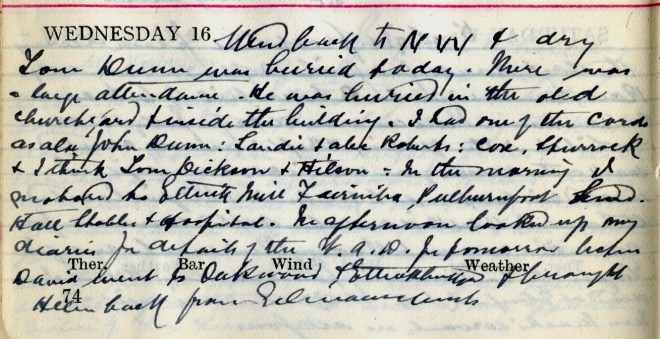 WEDNESDAY 16 Wind back to N W & dry
Tom Dunn was buried today. There was
a large attendance. He was buried in the old
churchyard & inside the building. I had one of the cords
as also John Dunn: Sandie & alec Roberts: Cox, Sparrock
& I think Tom Dickson & Hilson - In the morning I
to Ettrick Mill
Hall & Hospital. In afternoon looked up my
diaries for details of the V. A. D. for tomorrow
Ther Bar Wind Weather
David went to Oakwood & Ettrickbridge & brought
74
Helen back from